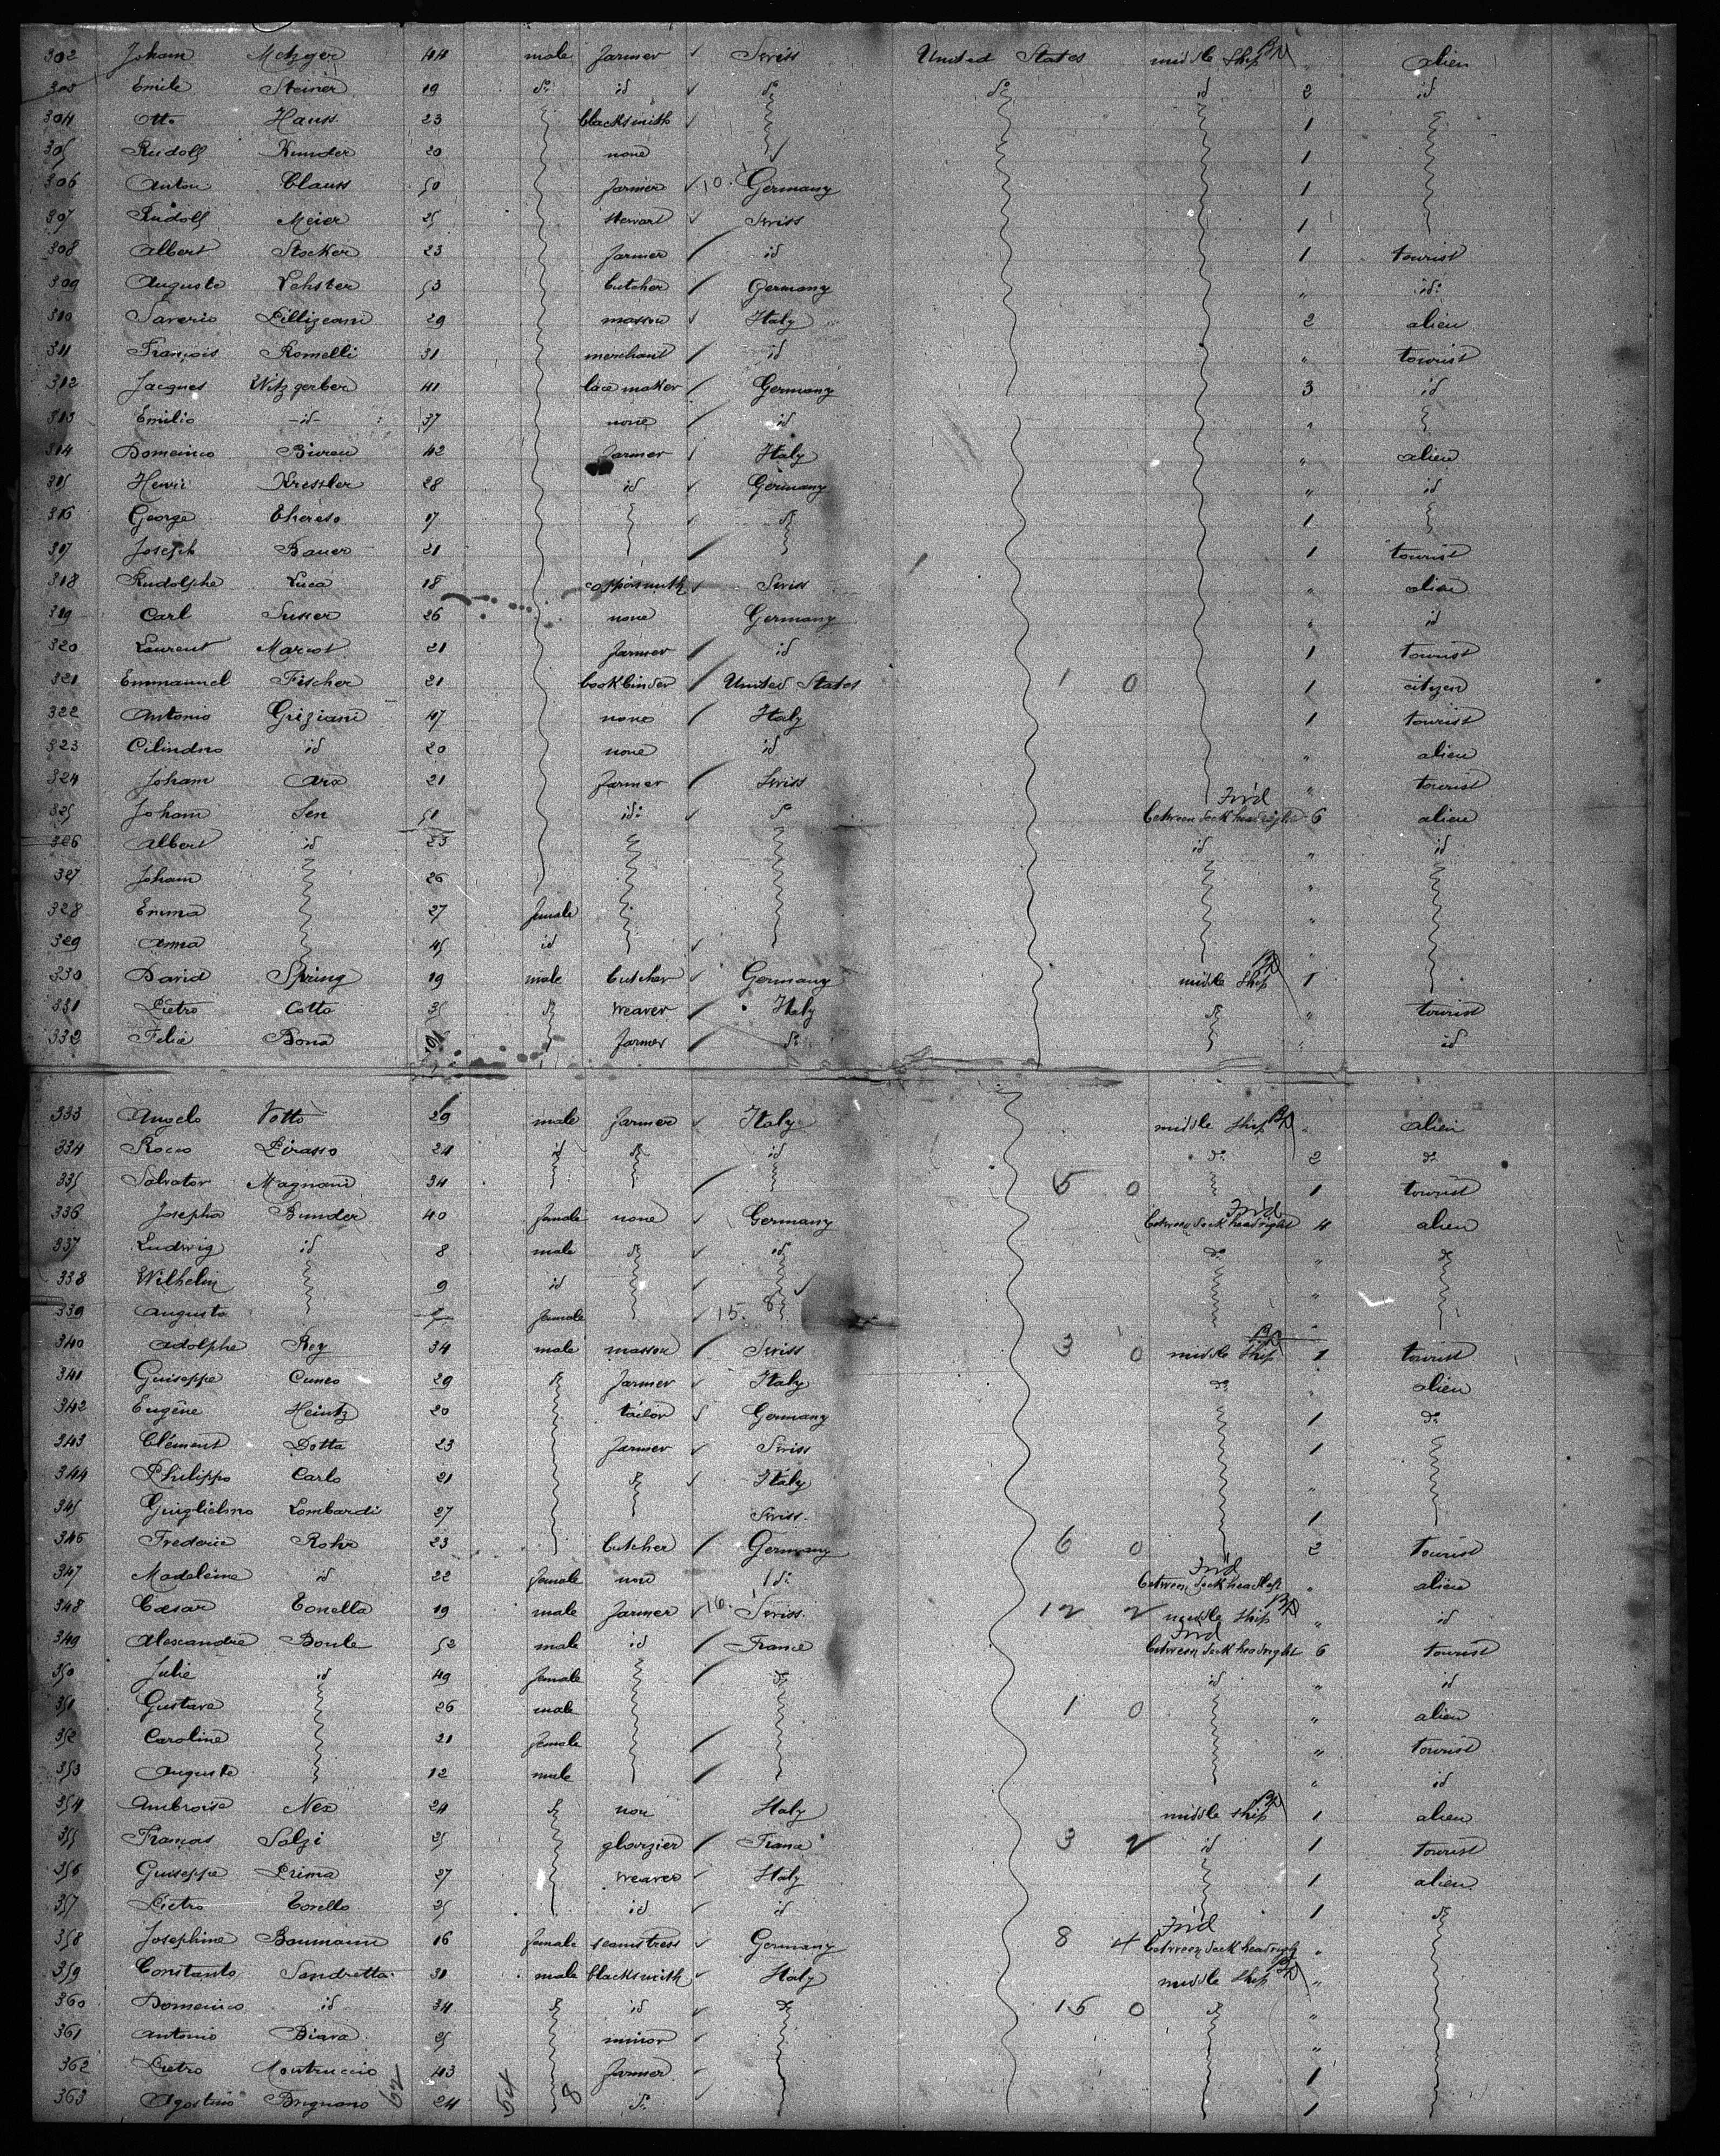 302 Joham Metzger 44 male farmer ✓ Swiss United States middle ship " alien
303 Emile Steiner 19 do id ✓ do do id 2 id
304 Otto Hauss 23 blacksmith ✓ 1
305 Rudolf Kunder 20 none 1
306 Anton Clauss 50 farmer ✓ 10. Germany 1
307 Rudolf Meier 25 stewart ✓ Swiss 1
308 Albert Stocker 23 farmer / id 1 tourist
309 Auguste 53 butcher / Germany " id:
310 Saverio 29 masson ✓ Italy 2 alien
311 François Romelli 31 merchant / id " tourist
312 Jacques Witzgerber 41 lace maker / Germany 3 id
313 Emilio -id- 37 none / id "
314 Domeinco 42 farmer ✓ Italy " alien
315 Henri Kressler 28 id ✓ Germany " id
316 George 17 ✓ do 1
317 Joseph Bauer 21 / 1 tourist
318 Rudolphe Luca 18 ✓ Swiss " alien
319 Carl Susser 26 none Germany " id
320 Laurent Marcot 21 farmer / id 1 tourist
321 Emmanuel Fischer 21 bookbinder / United States 1 0 1 citizen
322 Antonio Griziani 47 none / Italy 1 tourist
323 Cilindro id 20 none id " alien
324 Joham 21 farmer / Swiss " tourist
325 Joham Sen 51 id: ✓ do Fw'd between deck head right 6 alien
326 Albert id 25 id " id
327 Joham 26 "
328 Emma 27 female "
329 Anna 45 id ✓ "
330 David Spring 19 male butcher ✓ Germany middle ship 1
331 Pietro Cotto 35 do weaver / Italy do " tourist
332 Felix Bona farmer / do " id
333 Angelo Votto 29 male farmer ✓ Italy middle ship " alien
334 Rocco Pirasso 24 id do id do 2 do
335 Salvator Magnani 34 / 5 0 1 tourist
336 Josepha Bunder 40 female none ✓ Germany Fw'd between deck head right 4 alien
337 Ludwig id 8 male do ✓ id do " do
338 Wilhelm 9 id ✓ "
339 Augusta female ✓ 15. "
340 Adolphe Rey 34 male masson / Swiss 3 0 middle ship 1 tourist
341 Guiseppe Cuneo 29 do farmer ✓ Italy do " alien
342 Eugène Heintz 20 tailor ✓ Germany 1 do
343 Clément Dotta 23 farmer ✓ Swiss 1
344 Philippo Carlo 21 do ✓ Italy "
345 Guiglielmo Lombardi 27 Swiss. 1
346 Frederic Rohr 23 butcher / Germany 6 0 2 tourist
347 Madeleine id 22 female non do Fw'd between deck head left " alien
348 Cæsar Tonella 19 male farmer ✓ 16. Swiss. 12 2 middle ship " id
349 Alexandre Boule 52 male id / France Fw'd between deck head right 6 tourist
350 Julie id 49 female / do id " id
351 Gustave 26 male 1 0 " alien
352 Caroline 21 female / " tourist
353 Auguste 12 male / " id
354 Ambroise Nex 24 do non Italy middle ship 1 alien
355 François Salzi 25 glazier / France 3 2 id 1 tourist
356 Guiseppe Prima 27 weaver ✓ Italy 1 alien
357 Pietro Torello 25 id ✓ id 1 do
358 Josephine Baumann 16 female seamstress ✓ Germany 8 4 Fw'd between deck head right "
359 Constanto Sandretta 31 male blacksmith ✓ Italy middle ship "
360 Domenico id 34 do id ✓ do 15 0 do "
361 Antonio Biava 25 minor ✓ "
362 Pietro Montruccio 43 farmer ✓ 1
363 Agostino Brignano 24 do ✓ 1
62 54 8